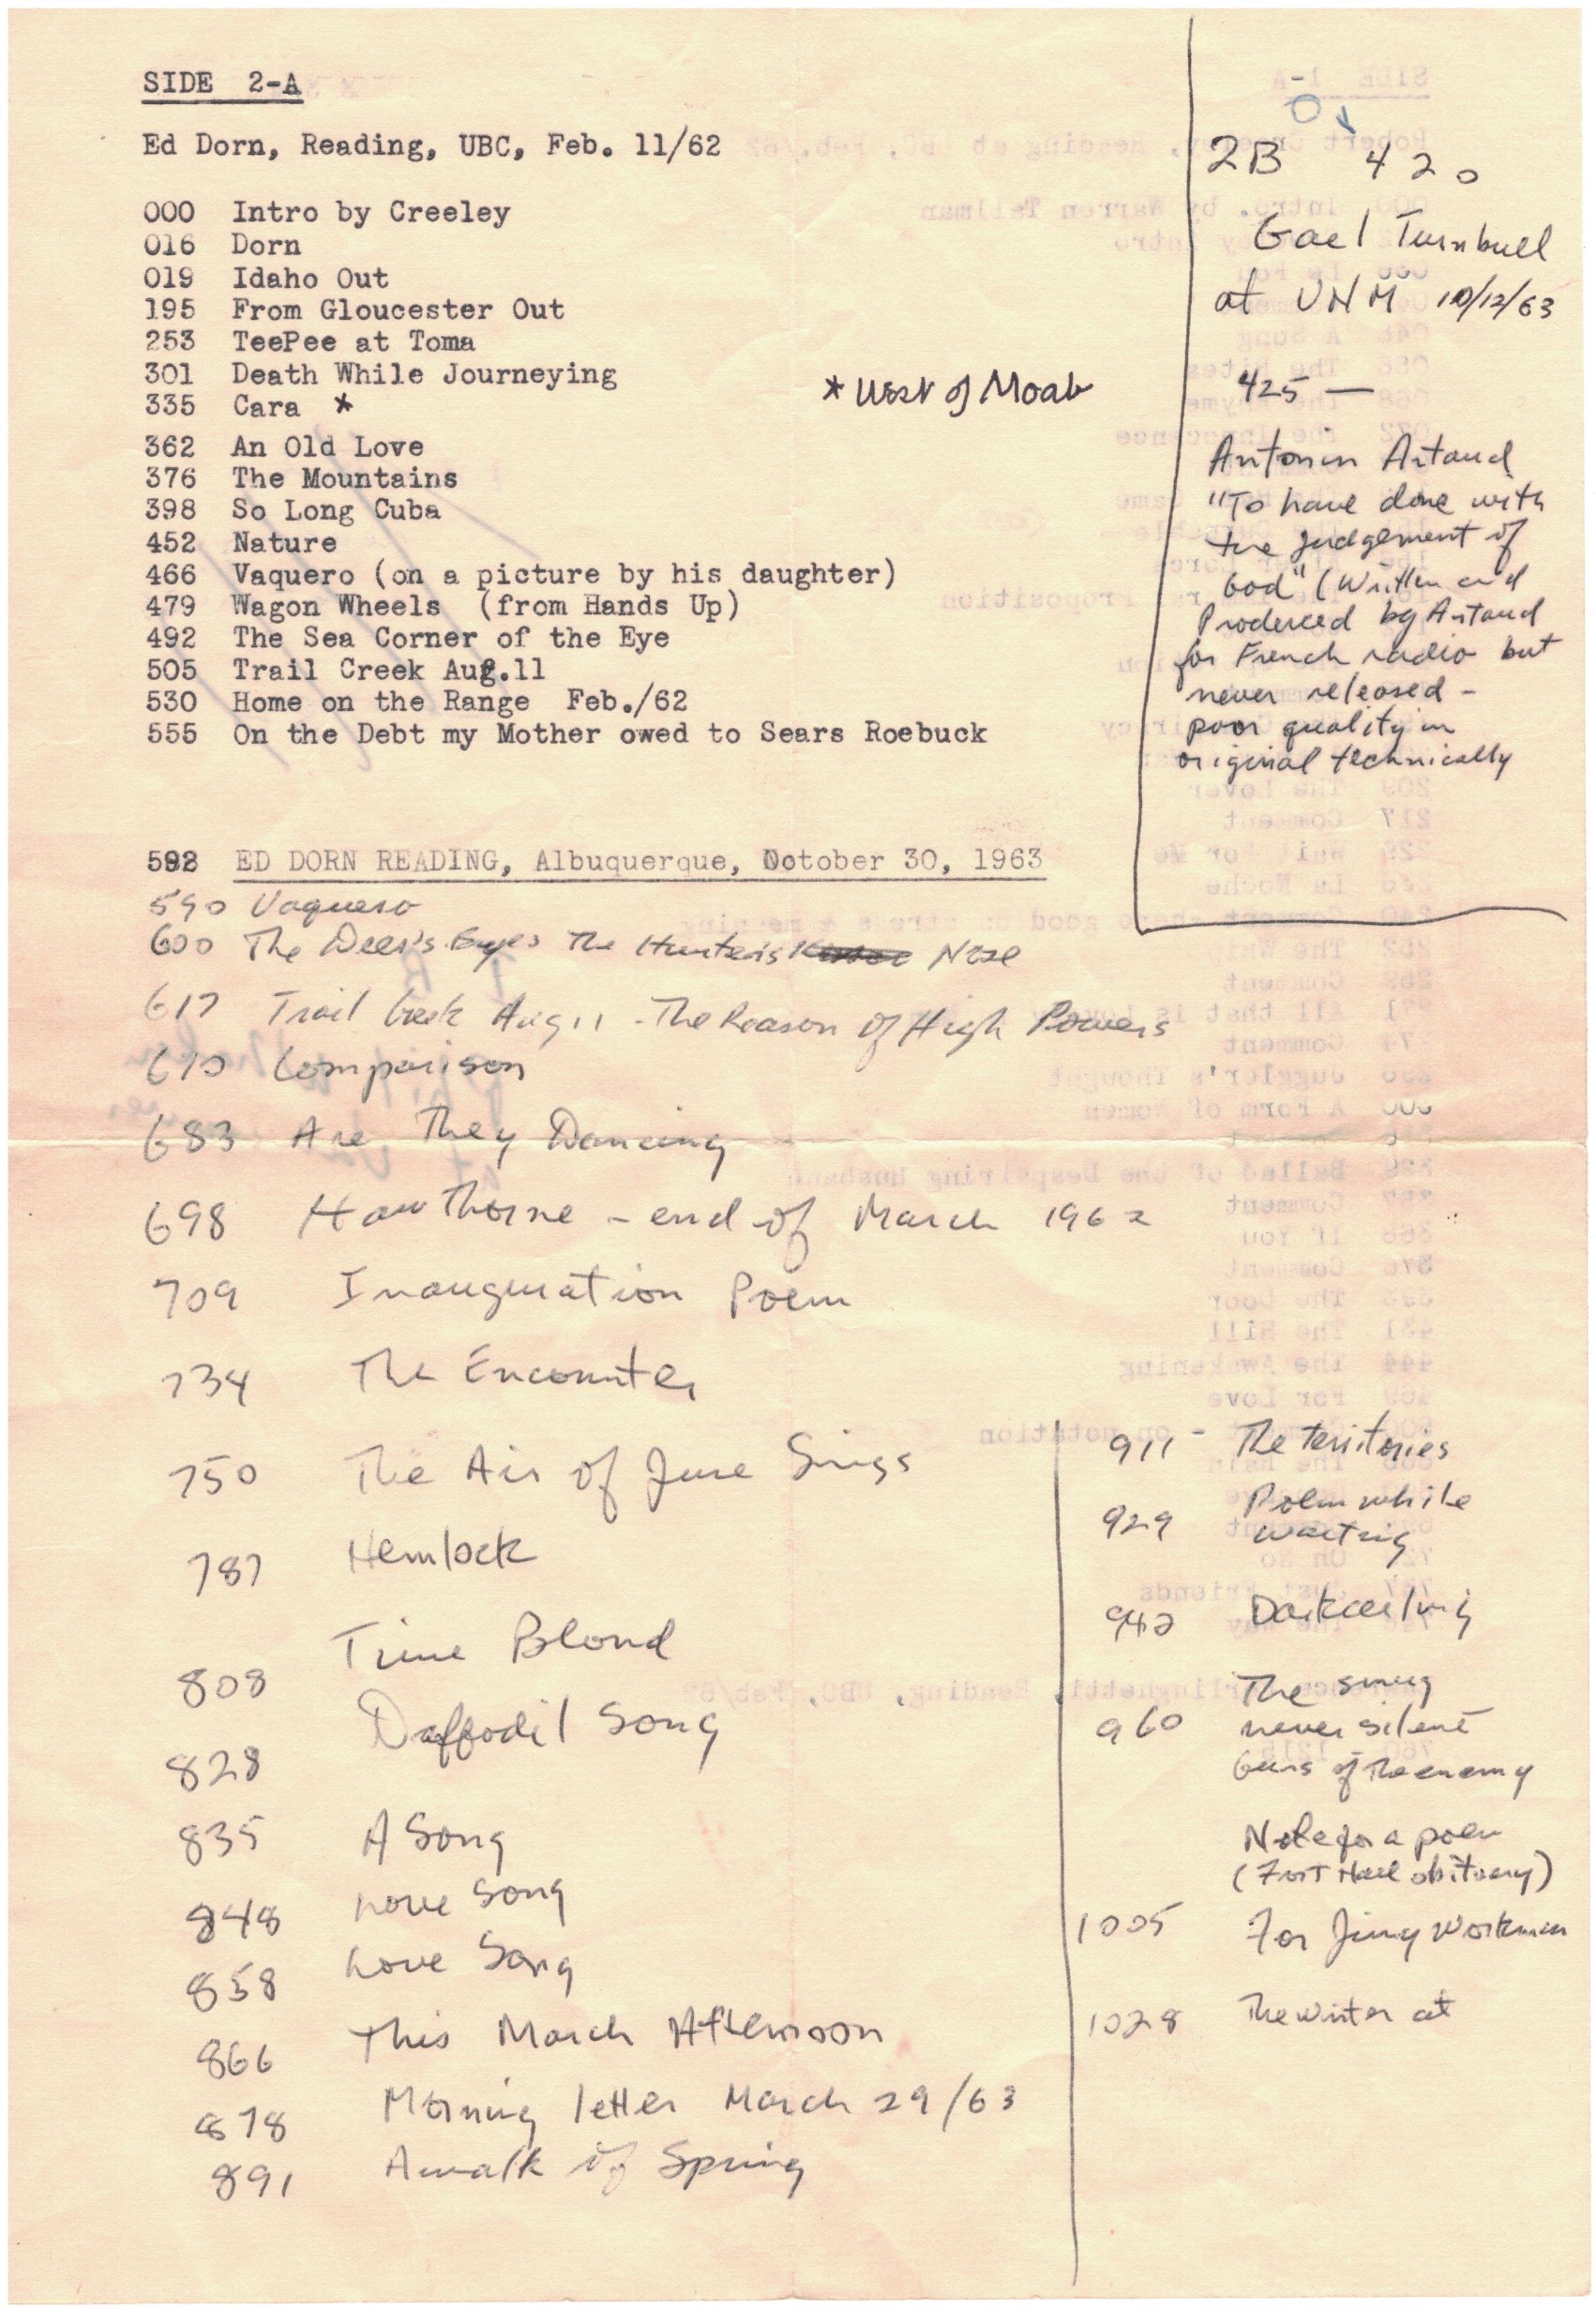 SIDE 2-A
Ed Dorn, Reading, UBC, Feb. 11/62
000 Intro by Creeley
016 Dorn
019 Idaho Out
195 From Gloucester Out
253 TeePee at Toma
301 Death While Journeying
335 Cara * * West of Moab
362 An Old Love
376 The Mountains
398 So Long Cuba
452 Nature
466 Vaquero (on a picture by his daughter)
479 Wagon Wheels (from Hands Up)
492 The Sea Corner of the Eye
505 Trail Creek Aug.11
530 Home on the Range Feb./62
555 On the Debt my Mother owed to Sears Roebuck
2B 420
Gael Turnbull
at UNM 10/12/63
425 —
Antonin Artaud
"To have done with
the judgement of
God" (Written and
Produced by Artaud
for French radio but
never released -
poor quality in
original technically
592 ED DORN READING, Albuquerque, October 30, 1963
590 Vaquero
600 The Deer's Eyes The Hunter's Nose
617 Trail Creek Aug 11 - The Reason of High Powers
670 Comparison
683 Are They Dancing
698 Hawthorne - end of March 1962
709 Inauguration Poem
734 The Encounter
750 The Air of June Sings
787 Hemlock
808 Time Blond
828 Daffodil Song
835 A Song
848 Love Song
858 Love Song
866 This March Afternoon
878 Morning letter March 29/63
891 A walk of Spring
911 - The territories
929 Poem while
waiting
942 Dark ceiling
The smug
960 never silent
Guns of the enemy
Note for a poem
(Fort Hall obituary)
1005 For Jimmy Workman
1028 The Winter at